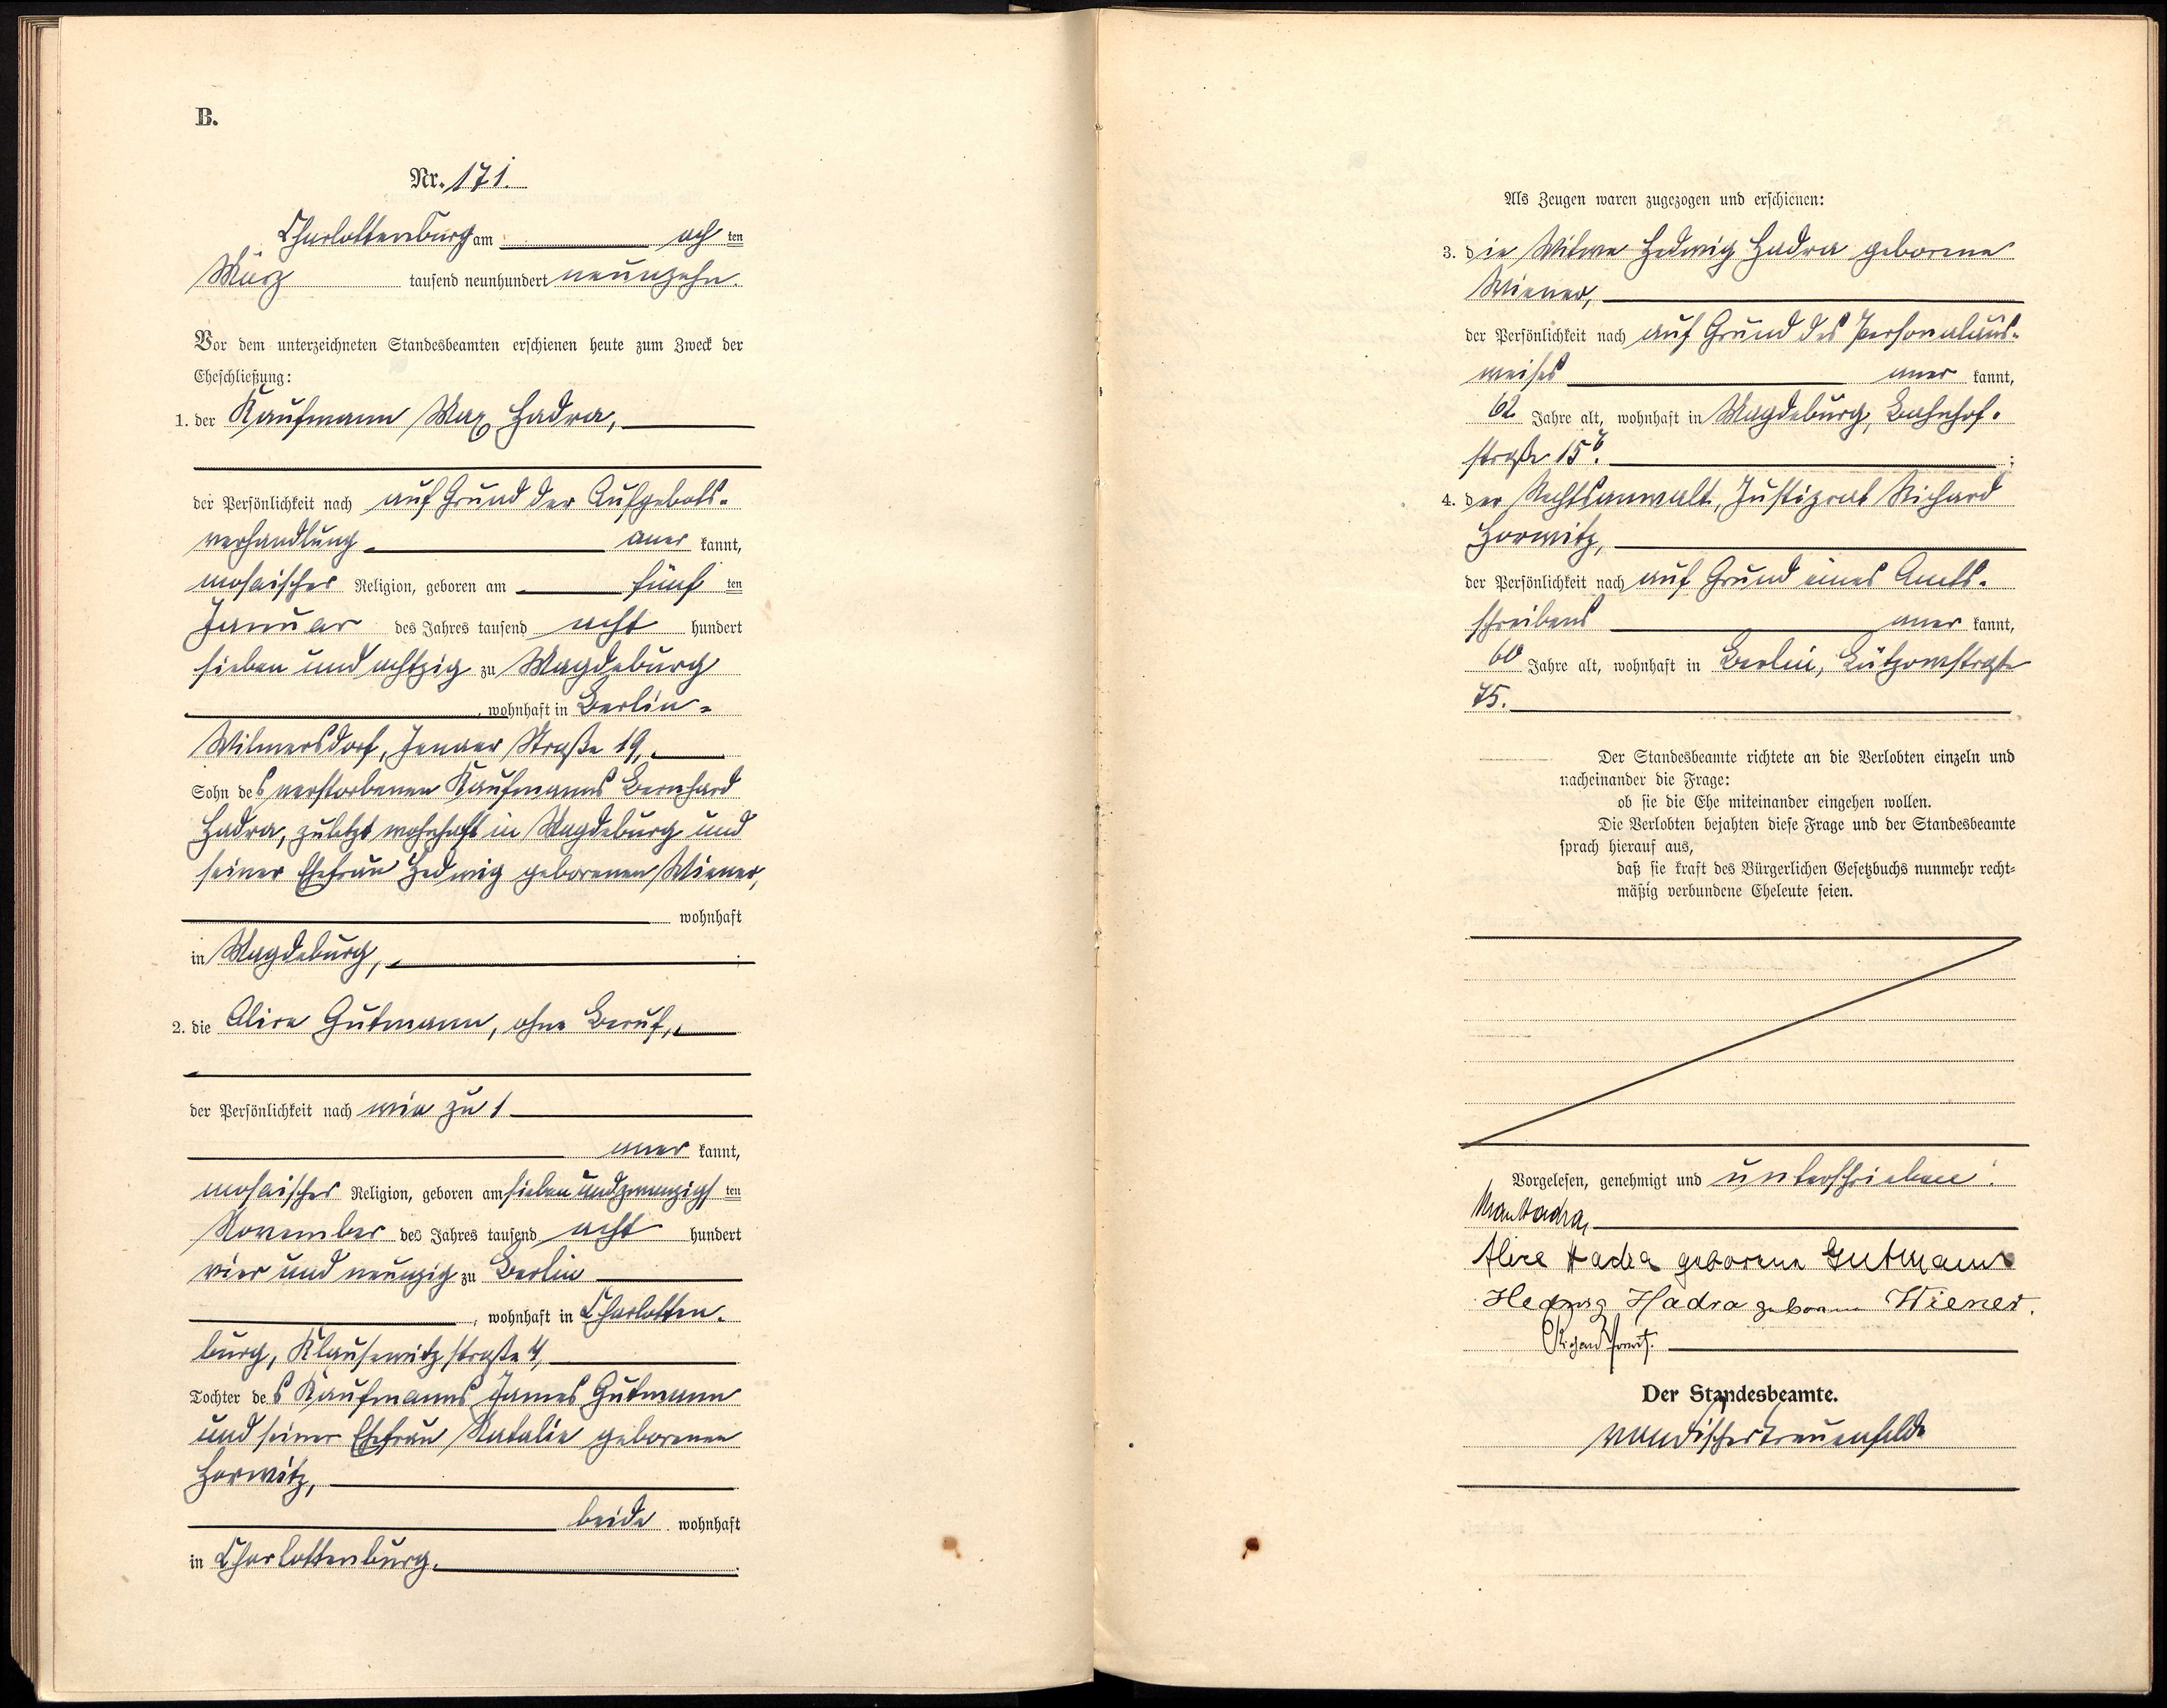 B.
Nr. 171.
Charlottenburg am ach ten
März tausend neunhundert neunzehn.
Vor dem unterzeichneten Standesbeamten erschienen heute zum Zweck der
Eheschließung:
1. der Kaufmann Max Hadra,
der Persönlichkeit nach auf Grund der Aufgebots-
verhandlung aner kannt,
mosaischer Religion, geboren am fünf ten
Januar des Jahres tausend acht hundert
sieben und achtzig zu Magdeburg
, wohnhaft in Berlin-
Wilmersdorf, Jenaer Straße 19,
Sohn des verstorbenen Kaufmanns Bernhard
Hadra, zuletzt wohnhaft in Magdeburg und
seiner Ehefrau Hedwig geborenen Wiener,
wohnhaft
in Magdeburg, ;
2. die Alice Gutmann, ohne Beruf,
der Persönlichkeit nach wie zu 1
aner kannt,
mosaischer Religion, geboren am siebenundzwanzigs ten
November des Jahres tausend acht hundert
vier und neunzig zu Berlin
, wohnhaft in Charlotten-
burg, Klausewitzstraße 4,
Tochter des Kaufmanns James Gutmann
und seiner Ehefrau Natalie geborenen
Horwitz,
beide wohnhaft
in Charlottenburg.
Als Zeugen waren zugezogen und erschienen:
3. die Witwe Hedwig Hadra geborene
Wiener,
der Persönlichkeit nach auf Grund des Personalaus-
weises aner kannt,
62 Jahre alt, wohnhaft in Magdeburg, Bahnhof-
straße 15b. ;
4. der Rechtsanwalt, Justizrat Richard
Horwitz,
der Persönlichkeit nach auf Grund eines Amts-
schreibens aner kannt,
60 Jahre alt, wohnhaft in Berlin, Lützowstraße
75.
Der Standesbeamte richtete an die Verlobten einzeln und
nacheinander die Frage:
ob sie die Ehe miteinander eingehen wollen.
Die Verlobten bejahten diese Frage und der Standesbeamte
sprach hierauf aus,
daß sie kraft des Bürgerlichen Gesetzbuchs nunmehr recht-
mäßig verbundene Eheleute seien.
Vorgelesen, genehmigt und unterschrieben:
Max Hadra,
Alice Hadra geborene Gutmann
Hedwig Hadra geborene Wiener.
Richard Horwitz.
Der Standesbeamte.